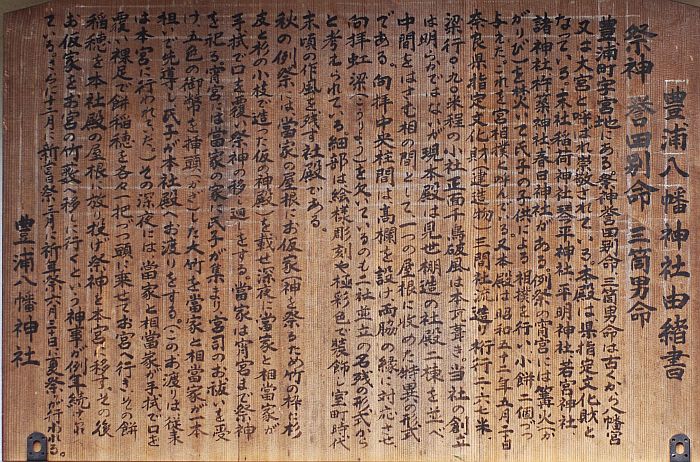 豊浦八幡神社由緒書
祭神 誉田別命 三筒男命
豊浦町字宮地にある祭神誉田別命 三筒男命は古くから八幡宮
又は大宮と呼ばれ崇敬されている本殿は県指定文化財と
なっている。末社稲荷神社琴平神社平明神社若宮神社
諸神社杵築神社春日神社がある例祭の宵宮には篝火(か
がりび)を焚いて氏子の子供による相撲を行い小餅二個づつ
与えた。これを宮相撲と呼ている。又本殿は昭和五十年五月二日
奈良県指定文化財(建造物)三間社流造り桁行二・六七米
梁行一・九〇米程の小社正面千鳥破風は本瓦葺き。当社の創立
は明らかではないが現本殿は見世棚造の社殿二棟を並べ
中間をはさむ相の間として一つの屋根に収めた特異の形式
である。向拝中央柱間は高欄を設け両脇の縁に対応させ
向拝虹梁(こうりよう)を欠いているのも二社並立の名残形式から
と考もられている細部は絵様彫刻や極彩色で装飾し室町時代
末頃の作風を残す社殿である。
秋の例祭は當家の屋根にお仮家神を祭るため竹の枠に杉
皮と杉の小枝で造った仮の神殿)を載せ深夜に當家と相當家が
手拭で口を覆い祭神の移し廻しをする當宮は宵宮まで祭神
を祀る宵宮は當家の家に氏子が集まり宮司のお祓いを受
け五色の御幣を挿頭(かざ)した大竹を當家と相當家が本
担いで先導し氏子が本社殿へお渡りをする。(このお渡りは従来
は本宮に行われてきた)その深夜には當家と相當家が手拭で口を
覆い裸足で餅稲穂を各々一把づつ頭に乗せてお宮へ行き、その餅
稲穂を本社殿の屋根へ放り投げ祭神を本宮に移すその後
お仮家をお宮の竹藪へ移しに行くという神事が例年続けられ
ているさらに十一月に新嘗祭二月に祈年祭六月三十日に夏祭が行われる。
豊浦八幡神社